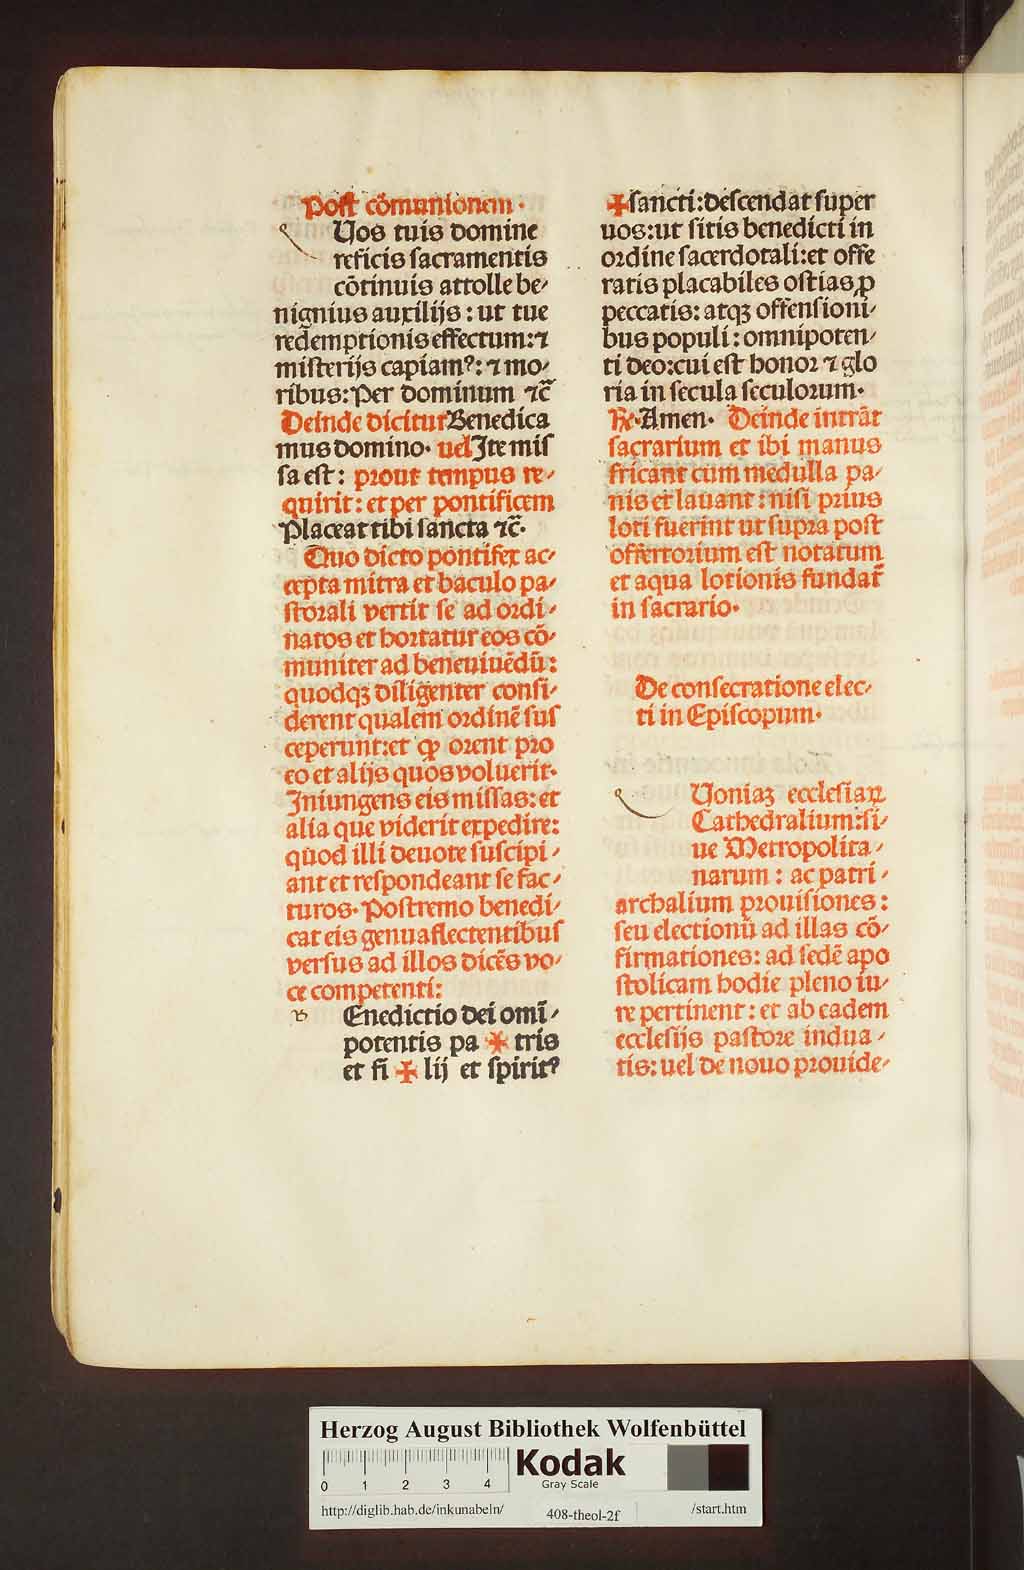 Post cōmunionem ·
Uos tuis domine
reficis sacramentis
cōtinuis attolle be-
nignius auxilijs : ut tue
redemptionis effectum: ⁊
misterijs capiamꝰ: ⁊ mo-
ribus: Per dominum ⁊c̄
Deinde dicitur Benedica
mus domino · uel Ite mis
sa est : prout tempus re-
quirit : et per pontificem
Placeat tibi sancta ⁊c̄·
Quo dicto pontifex ac-
cepta mitra et baculo pa-
storali vertit se ad ordi-
natos et hortatur eos cō-
muniter ad beneviuēdū:
quodqꝫ diligenter consi-
derent qualem ordinē sus
ceperunt: et ꝙ orent pro
eo et alijs quos voluerit·
Iniungens eis missas: et
alia que viderit expedire:
quod illi deuote suscipi-
ant et respondeant se fac-
turos· Postremo benedi-
cat eis genuaflectentibus
versus ad illos dicēs vo-
ce competenti:
b
Enedictio dei omī-
potentis pa ✠ tris
et fi ✠ lij et spiritꝰ
✠ sancti: descendat super
uos: ut sitis benedicti in
ordine sacerdotali: et offe
ratis placabiles ostias ꝓ
peccatis: atqꝫ offensioni-
bus populi : omnipoten-
ti deo: cui est honor ⁊ glo
ria in secula seculorum·
℞· Amen· Deinde intrāt
sacrarium et ibi manus
fricant cum medulla pa-
nis et lauant : nisi prius
loti fuerint ut supra post
offertorium est notatum
et aqua lotionis fundat̄
in sacrario·
De consecratione elec-
ti in Episcopum·
Uoniaꝫ ecclesiaꝝ
Cathedralium: si-
ue Metropolita-
narum : ac patri-
archalium prouisiones :
seu electionū ad illas cō-
firmationes: ad sedē apo
stolicam hodie pleno iu-
re pertinent : et ab eadem
ecclesijs pastore indua-
tis: uel de nouo prouide-
Herzog August Bibliothek Wolfenbüttel
0 1 2 3 4
Kodak
Gray Scale
http://diglib.hab.de/inkunabeln/ 408-theol-2f /start.htm